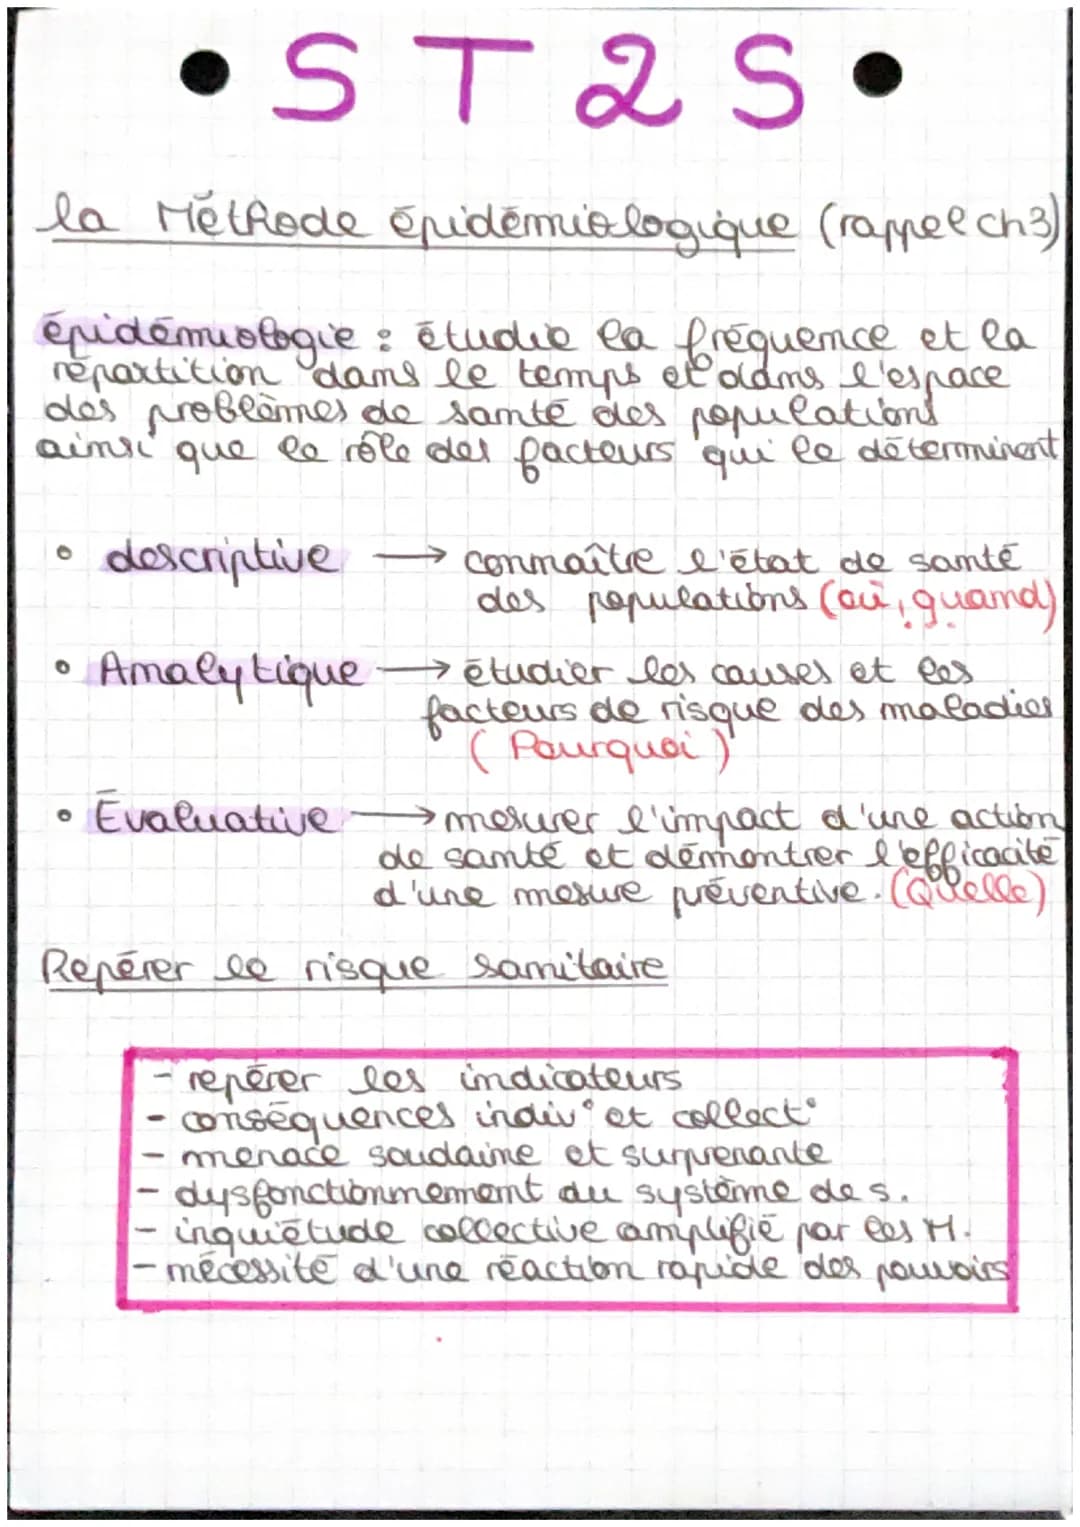 • ST2S •
la Méthode épidémiologique (rappel ch3)
épidémiologie : étudie la fréquence et la
répartition dans le temps et dans l'espace
des problèmes de santé des populations
ainsi que le rôle des facteurs qui le déterminent
• descriptive → connaître l'état de santé
des populations (où, quand)
• Analytique → étudier les causes et les
facteurs de risque des maladies
(Pourquoi)
• Évaluative → mesurer l'impact d'une action
de santé et démontrer l'efficacité
d'une mesure préventive. (Quelle)
Repérer le risque sanitaire
- repérer les indicateurs
- conséquences indiv° et collect°
- menace soudaine et surprenante
- dysfonctionnement du système de s.
- inquiétude collective amplifié par les M.
- nécessité d'une réaction rapide des pouvoirs